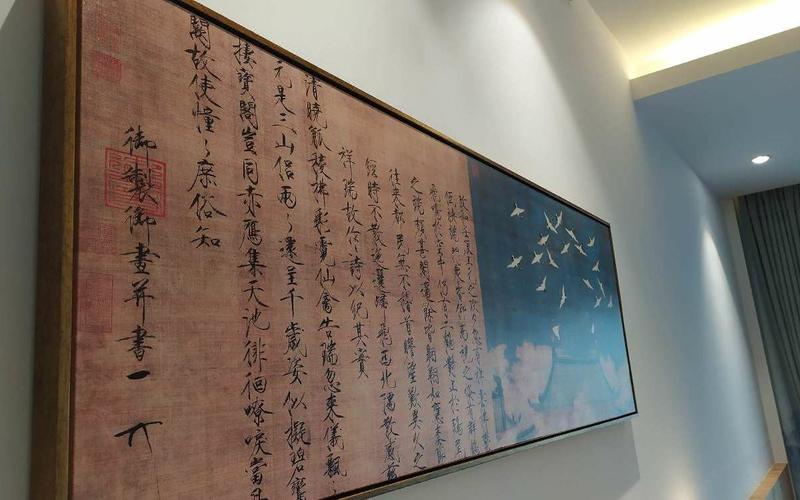 政和壬辰上元之次夕忽有祥雲拂鬱
低映端門衆皆仰而視之倏有群鶴
飛鳴於空中仍有二鶴對止於鴟尾
之端頗甚閒適餘皆翱翔如應奏節
往來都民無不稽首瞻望歎異久之
經時不散迤邐歸飛西北隅散感茲
祥瑞故作詩以紀其實
清曉觚稜拂彩霓仙禽告瑞忽來儀飄
元是三山侶兩々還呈千歲姿似擬碧鸞
棲寶閣豈同赤鴈集天池徘徊嘹唳當丹
闕故使憧々庶俗知
御製御畫并書一